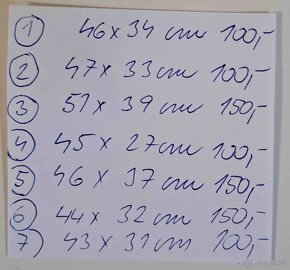 1 46 x 34 cm 100,-
2 47 x 33 cm 100,-
3 51 x 39 cm 150,-
4 45 x 27 cm 100,-
5 46 x 37 cm 150,-
6 44 x 32 cm 150,-
7 43 x 31 cm 100,-